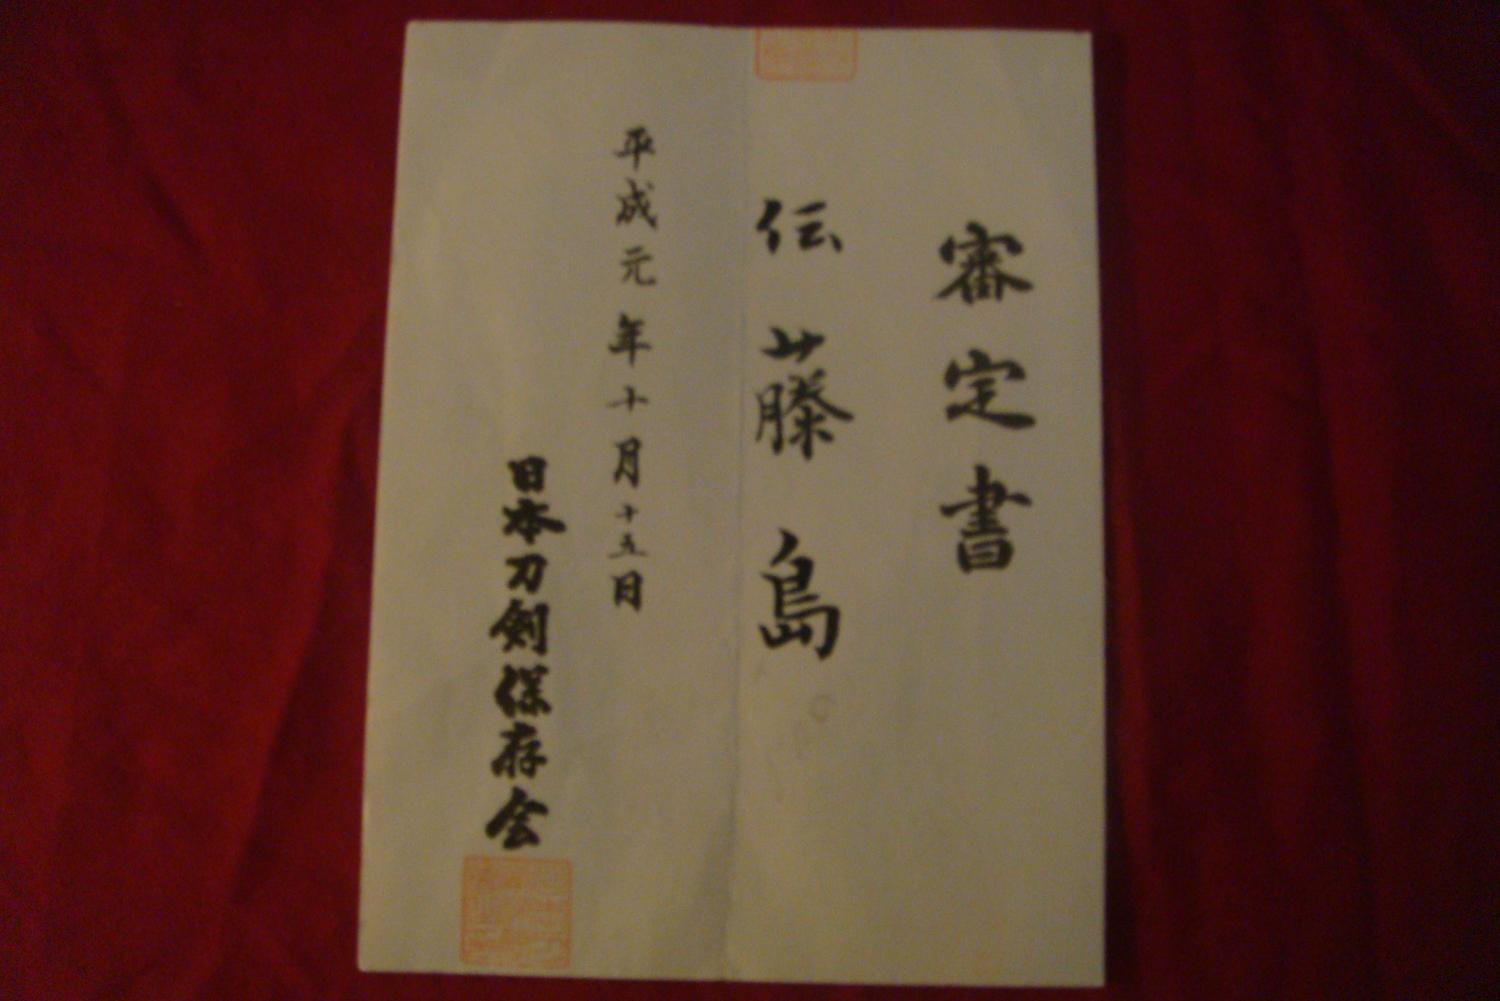 審定書
伝藤島
平成元年十月十五日
日本刀剣保存会